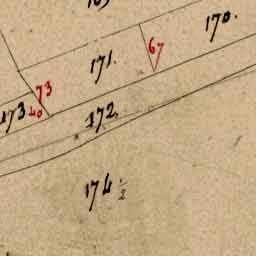 170.
67
171.
73
40
173
172.
174 1/2